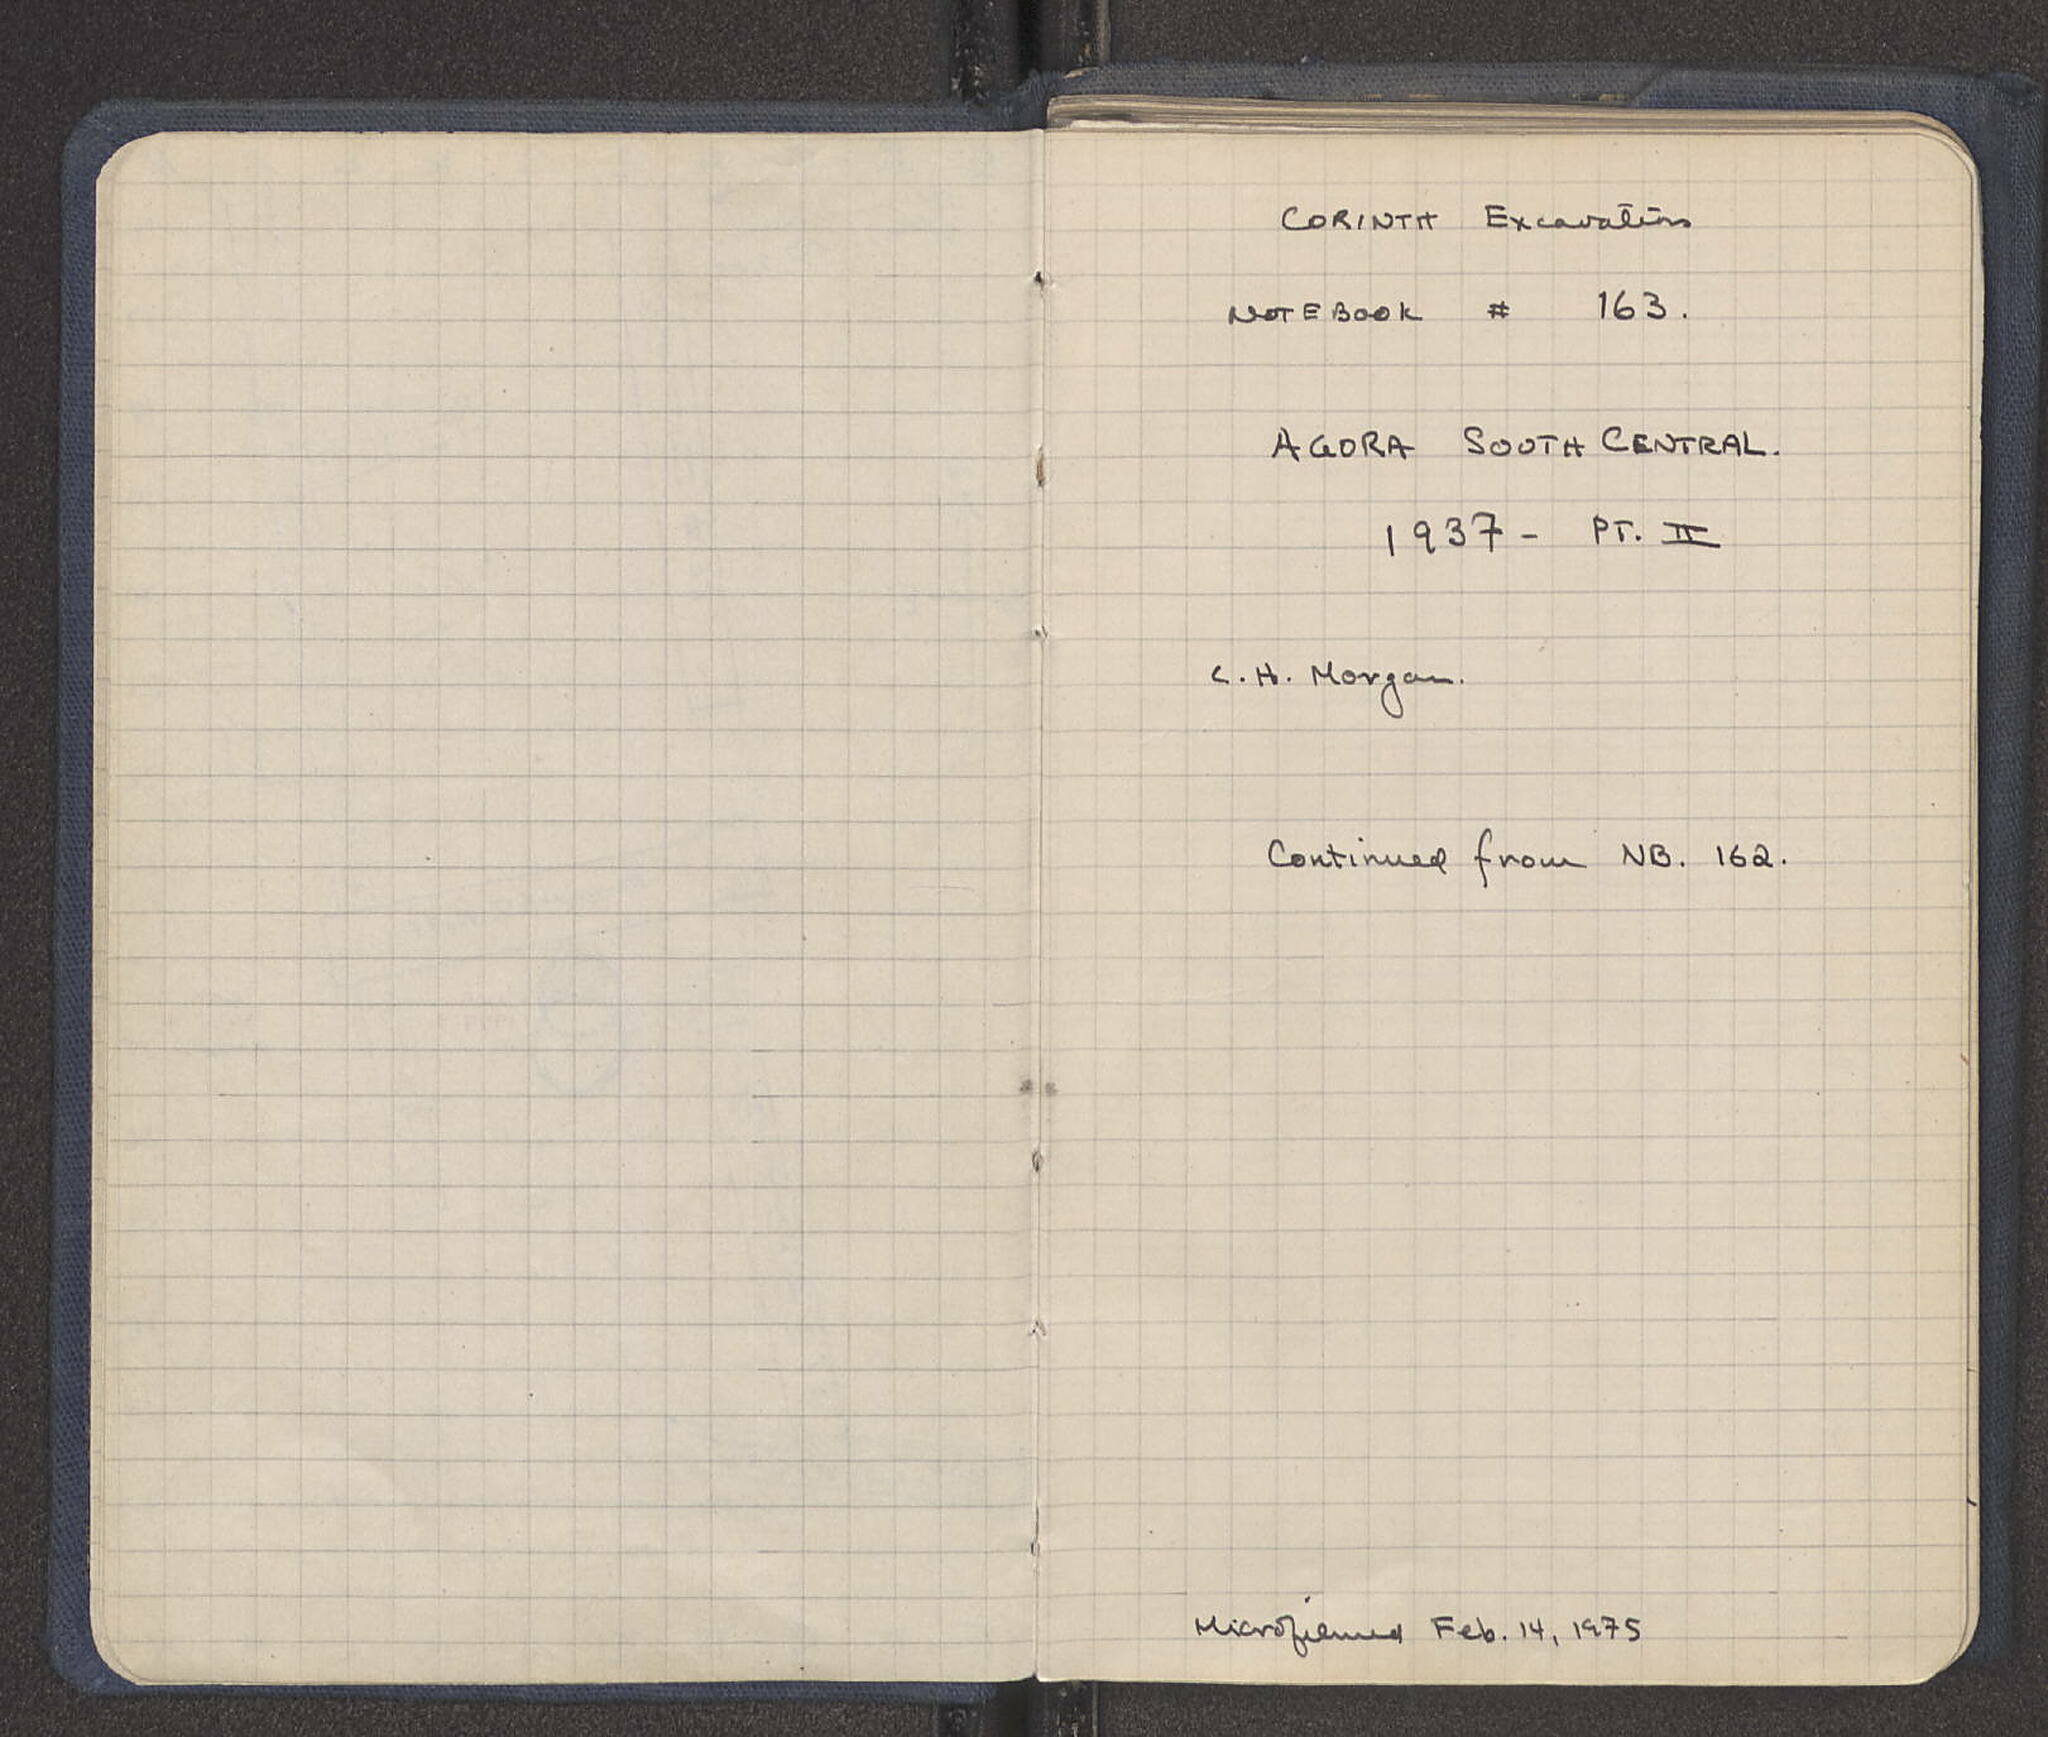 CORINTH Excavations
NOTEBOOK # 163.
AGORA SOUTH CENTRAL.
1937 - PT. II
C. H. Morgan.
Continued from NB. 162.
Microfilmed Feb. 14, 1975